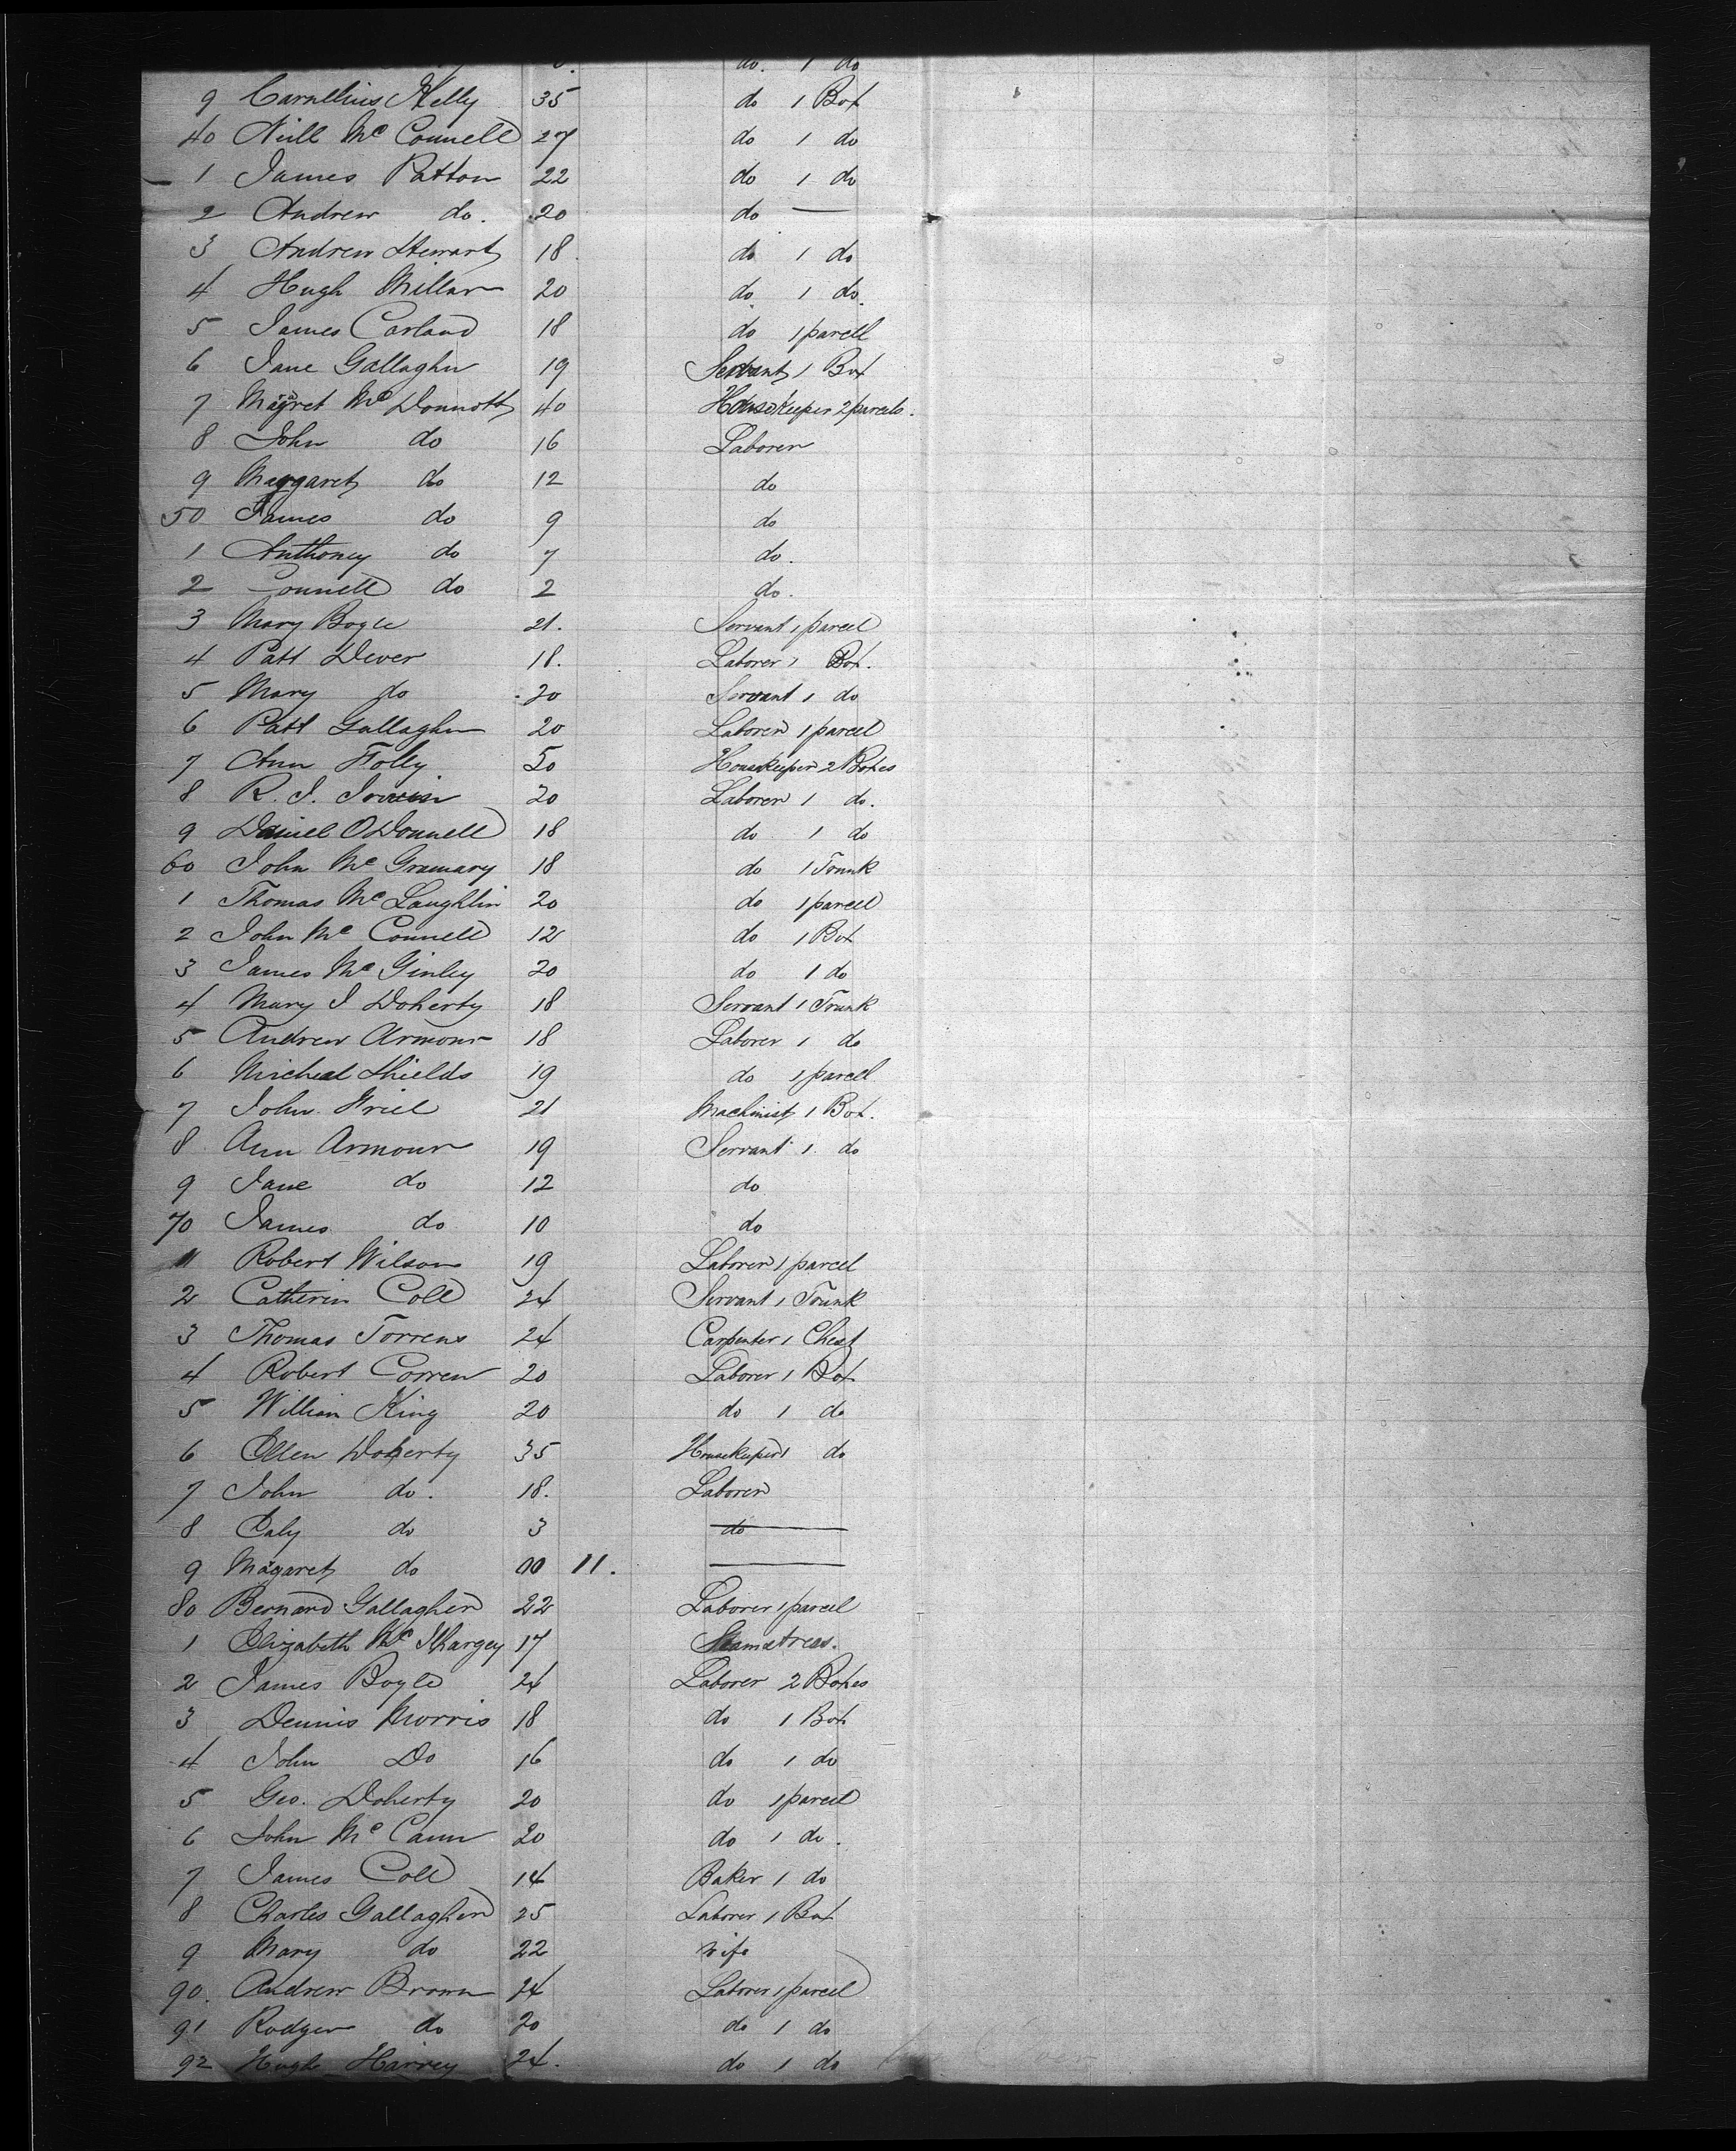 do. 1 do
9 Carnllius Kelly 35 do 1 Box
40 Neill Mc Connell 27 do 1 do
1 James Patton 22 do 1 do
2 Andrew do. 20 do —
3 Andrew Stewart 18. do 1 do
4 Hugh Millar 20 do. 1 do.
5 James Carland 18 do 1 parcell
6 Jane Gallagher 19 Servant 1 Box
7 Magret Mc Donnott 40 Housekeeper 2 parcels.
8 John do 16 Laborer
9 Maggaret do 12 do
50 James do 9 do
1 Anthoney do 7 do.
2 Connell do 2 do.
3 Mary Boyle 21. Servant 1 parcel
4 Patt Dever 18. Laborer 1 Box.
5 Mary do 20 Servant 1 do
6 Patt Gallagher 20 Laborer 1 parcel
7 Ann Folly 50 Housekeeper 2 Boxes
8 R. J. 20 Laborer 1 do.
9 Daniel O Donnell 18 do 1 do
60 John Mc 18 do 1 Trunk
1 Thomas Mc Laughlin 20 do 1 parcel
2 John Mc Connell 12 do 1 Box
3 James Mc Ginley 20 do 1 do
4 Mary J Doherty 18 Servant 1 Trunk
5 Andrew Armour 18 Laborer 1 do
6 Micheal Shields 19 do 1 parcell
7 John Friel 21 Machinist 1 Box.
8 Ann Armour 19 Servant 1. do
9 Jane do 12 do
70 James do 10 do
1 Robert Wilson 19 Laborer 1 parcel
2 Catherin Coll 24 Servant 1 Trunk
3 Thomas Torrens 24 Carpenter 1 Chest
4 Robert Correw 20 Laborer 1 Box
5 Willian King 20 do 1 do
6 Ellen Doherty 35 Housekeeper 1 do
7 John do. 18. Laborer
8 do 3 do
9 Magaret do 00 11. —
80 Bernard Gallagher 22 Laborer 1 parcel
1 Elizabeth Mc Ilhargey 17 Seamstress.
2 James Boyle 24 Laborer 2 Boxes
3 Dennis Morris 18 do 1 Box
4 John Do 16 do 1 do
5 Geo. Doherty 20 do 1 parcel
6 John Mc Cann 20 do 1 do.
7 James Coll 14 Baker 1 do
8 Charles Gallagher 25 Laborer 1 Box
9 Mary do 22 wife
90. Andrew Brown 24 Laborer 1 parcel
91 Rodger do 20 do 1 do
92 Hugh Harvey 24. do 1 do